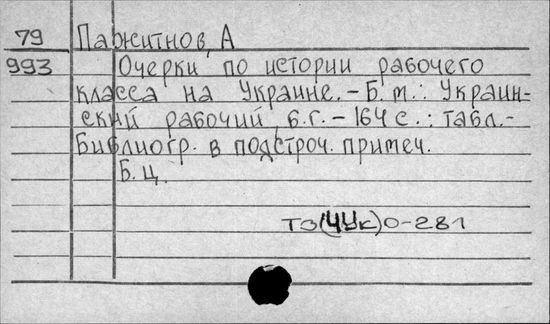 79 Пажитнов, А
993 Очерки по истории рабочего
класса на Украине.- Б.м.: Украин-
ский рабочий, б.г.- 164 с.: табл.-
Библиогр. в подстроч. примеч.
Б.ц.
Т3(4Ук)0-281